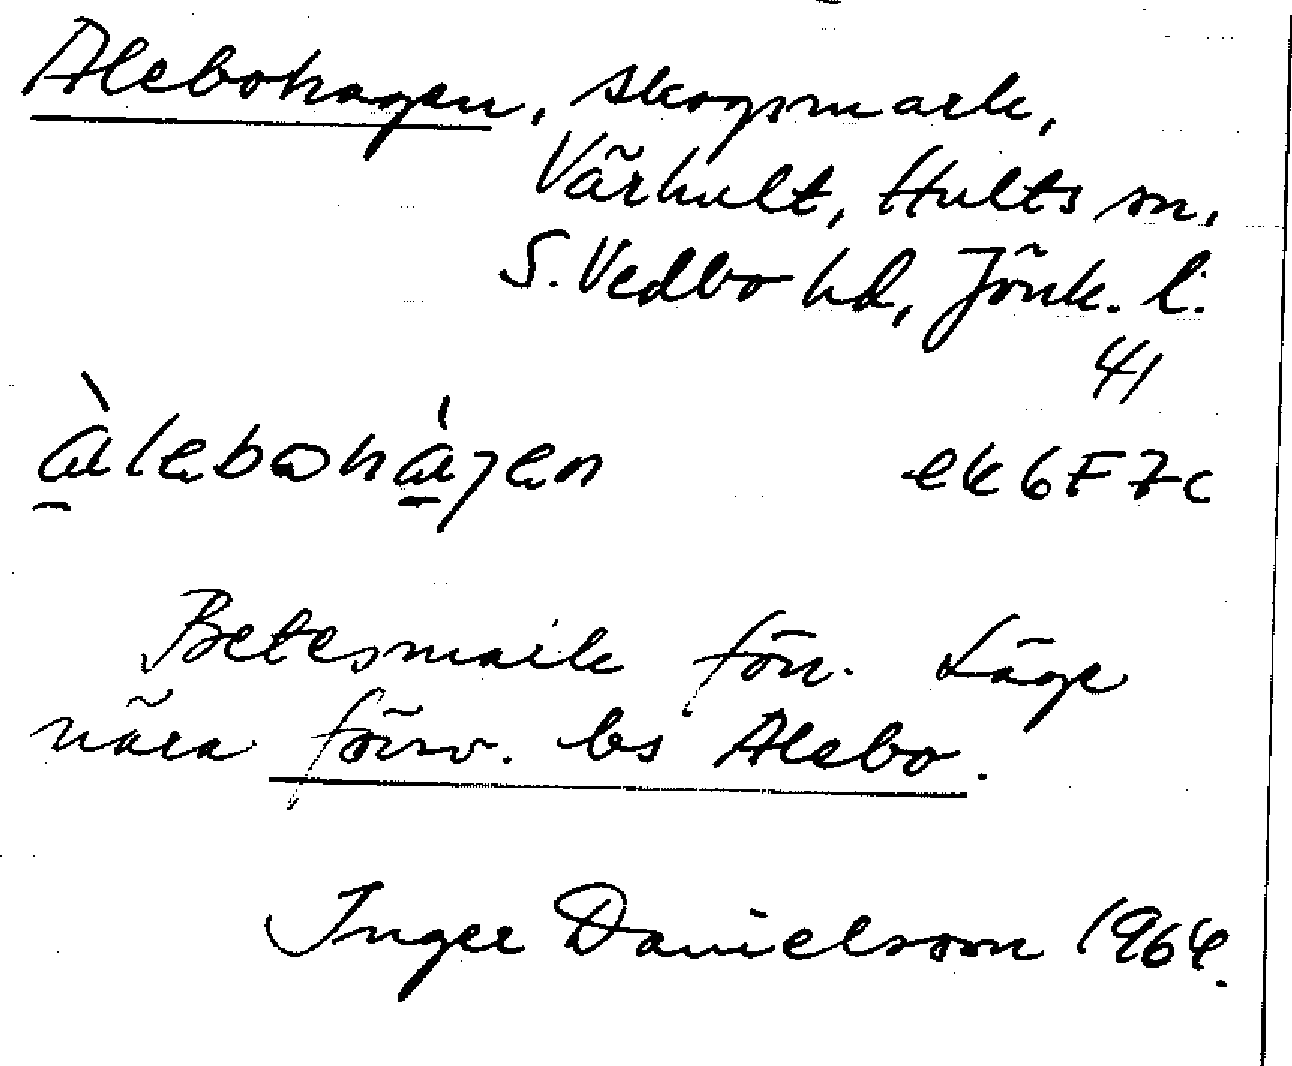 Alebohagen, skogsmark,
Värhult, Hults sn,
S. Vedbo hd, Jönk. l.
41
àlebohàgen ek 6F7c
Betesmark förr. Läge
nära försv. bs Alebo.
Inger Danielsson 1964.